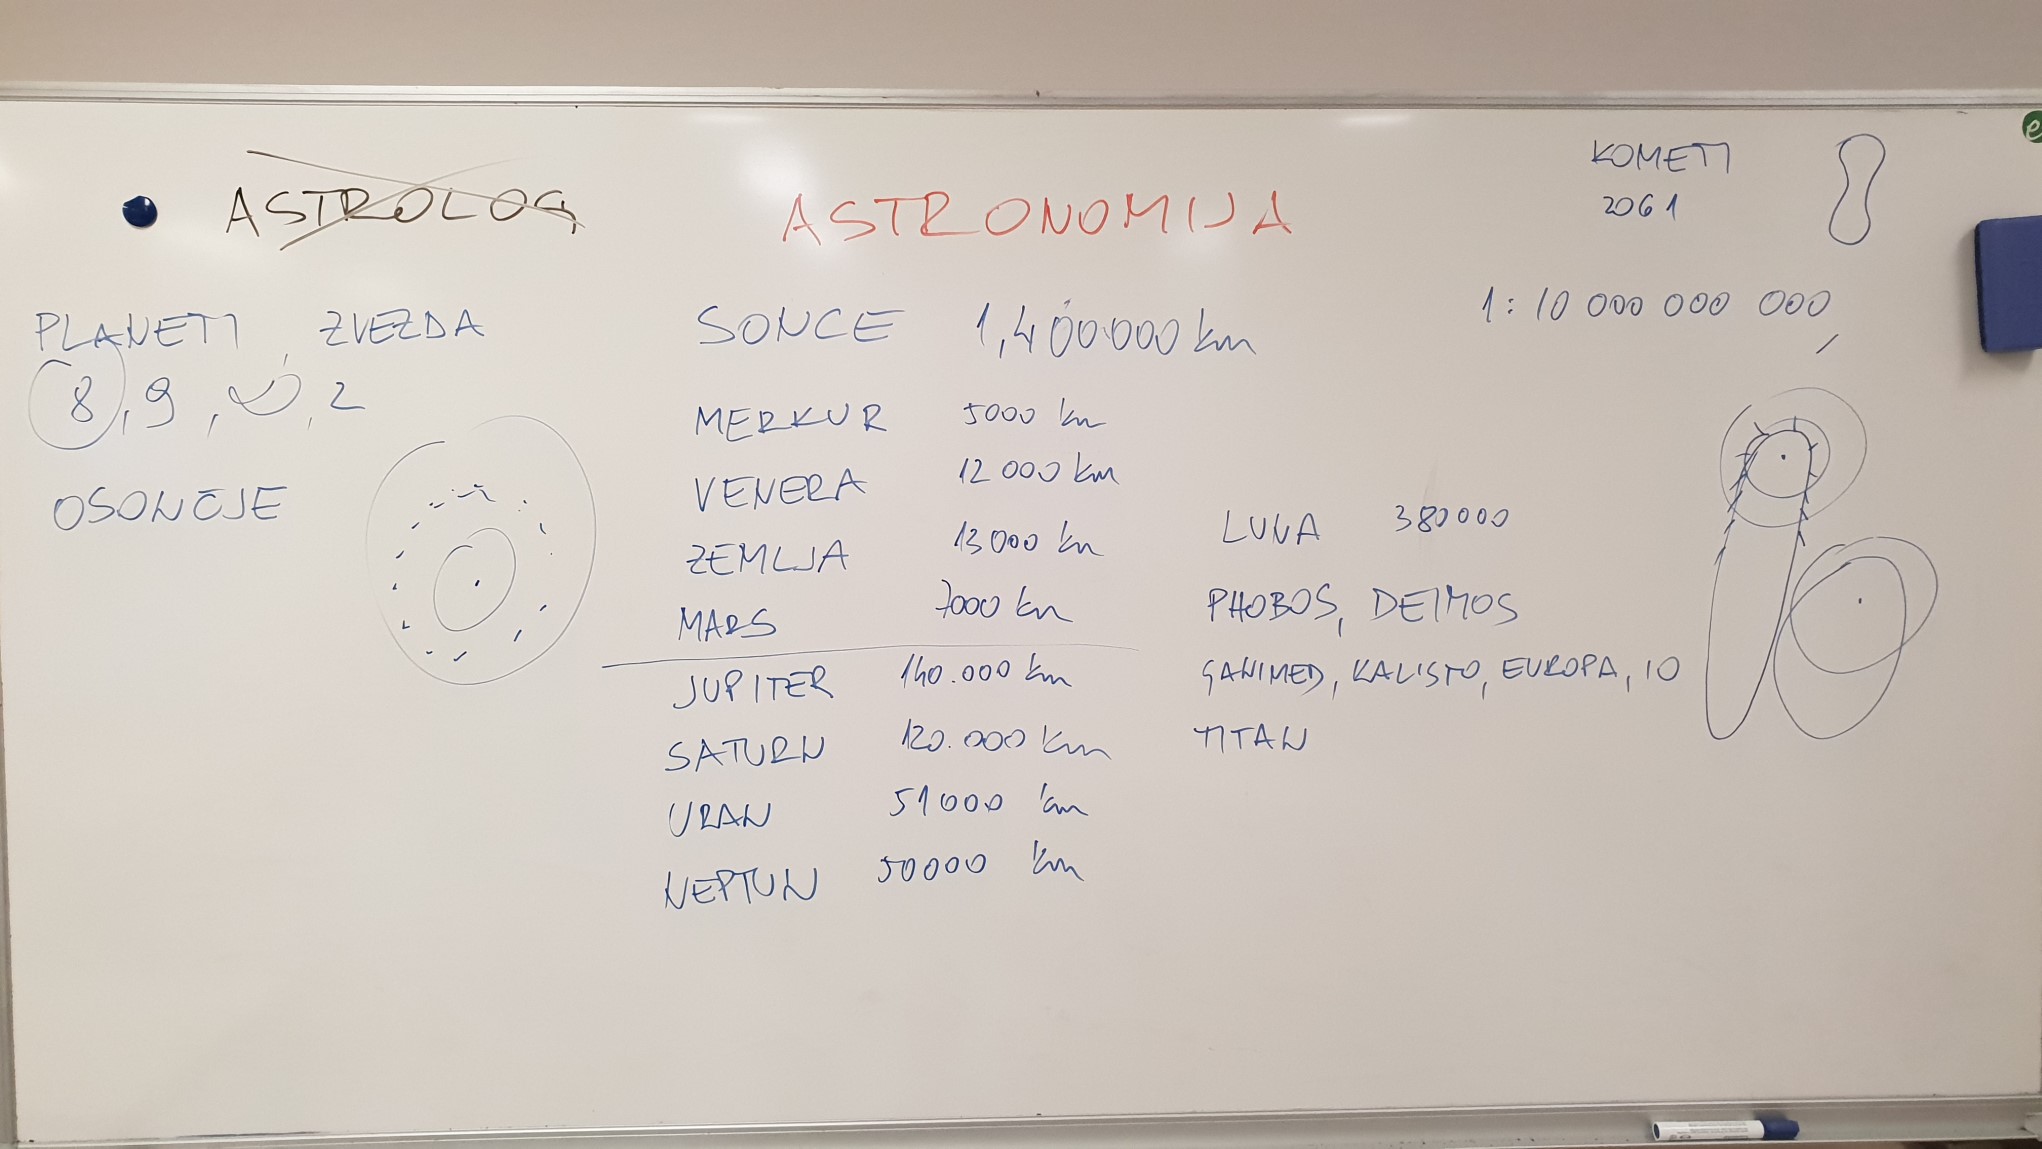 ASTROLOG
ASTRONOMIJA
KOMETI
2061
PLANETI, ZVEZDA
8, 9, 2
OSONČJE
SONCE 1,400.000 km
MERKUR 5000 km
VENERA 12 000 km
ZEMLJA 13 000 km
MARS 7000 km
JUPITER 140.000 km
SATURN 120.000 km
URAN 51000 km
NEPTUN 50000 km
1:10 000 000 000
LUNA 380000
PHOBOS, DEIMOS
GANIMED, KALISTO, EUROPA, IO
TITAN
e